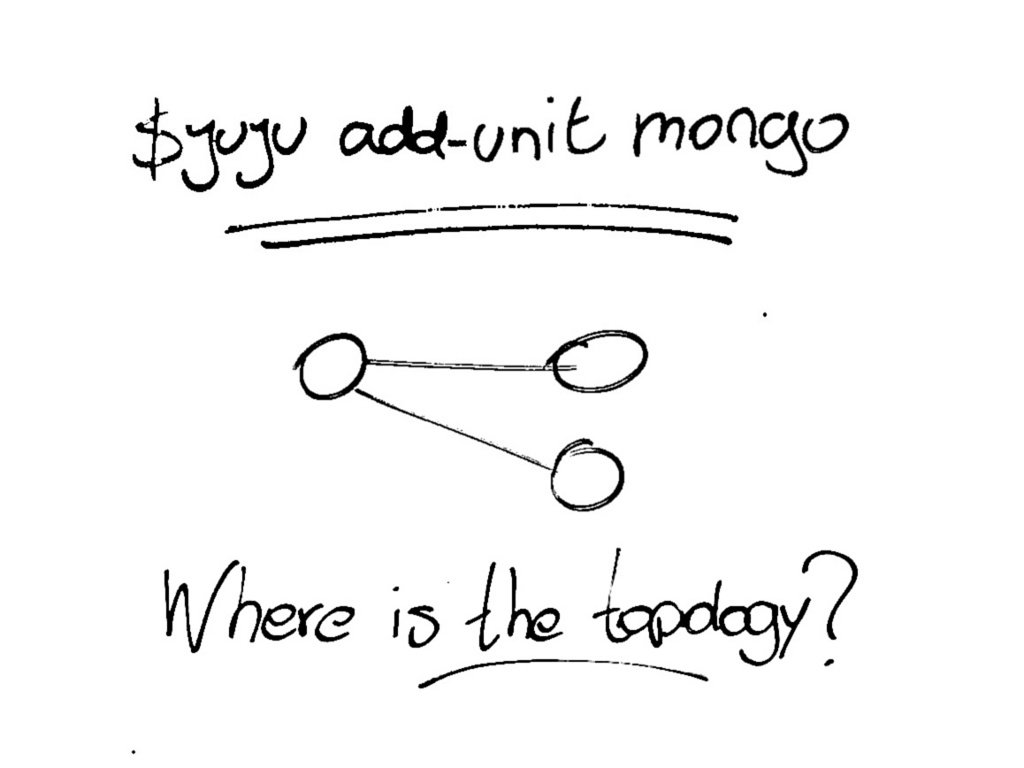 $juju add-unit mongo
Where is the topology?